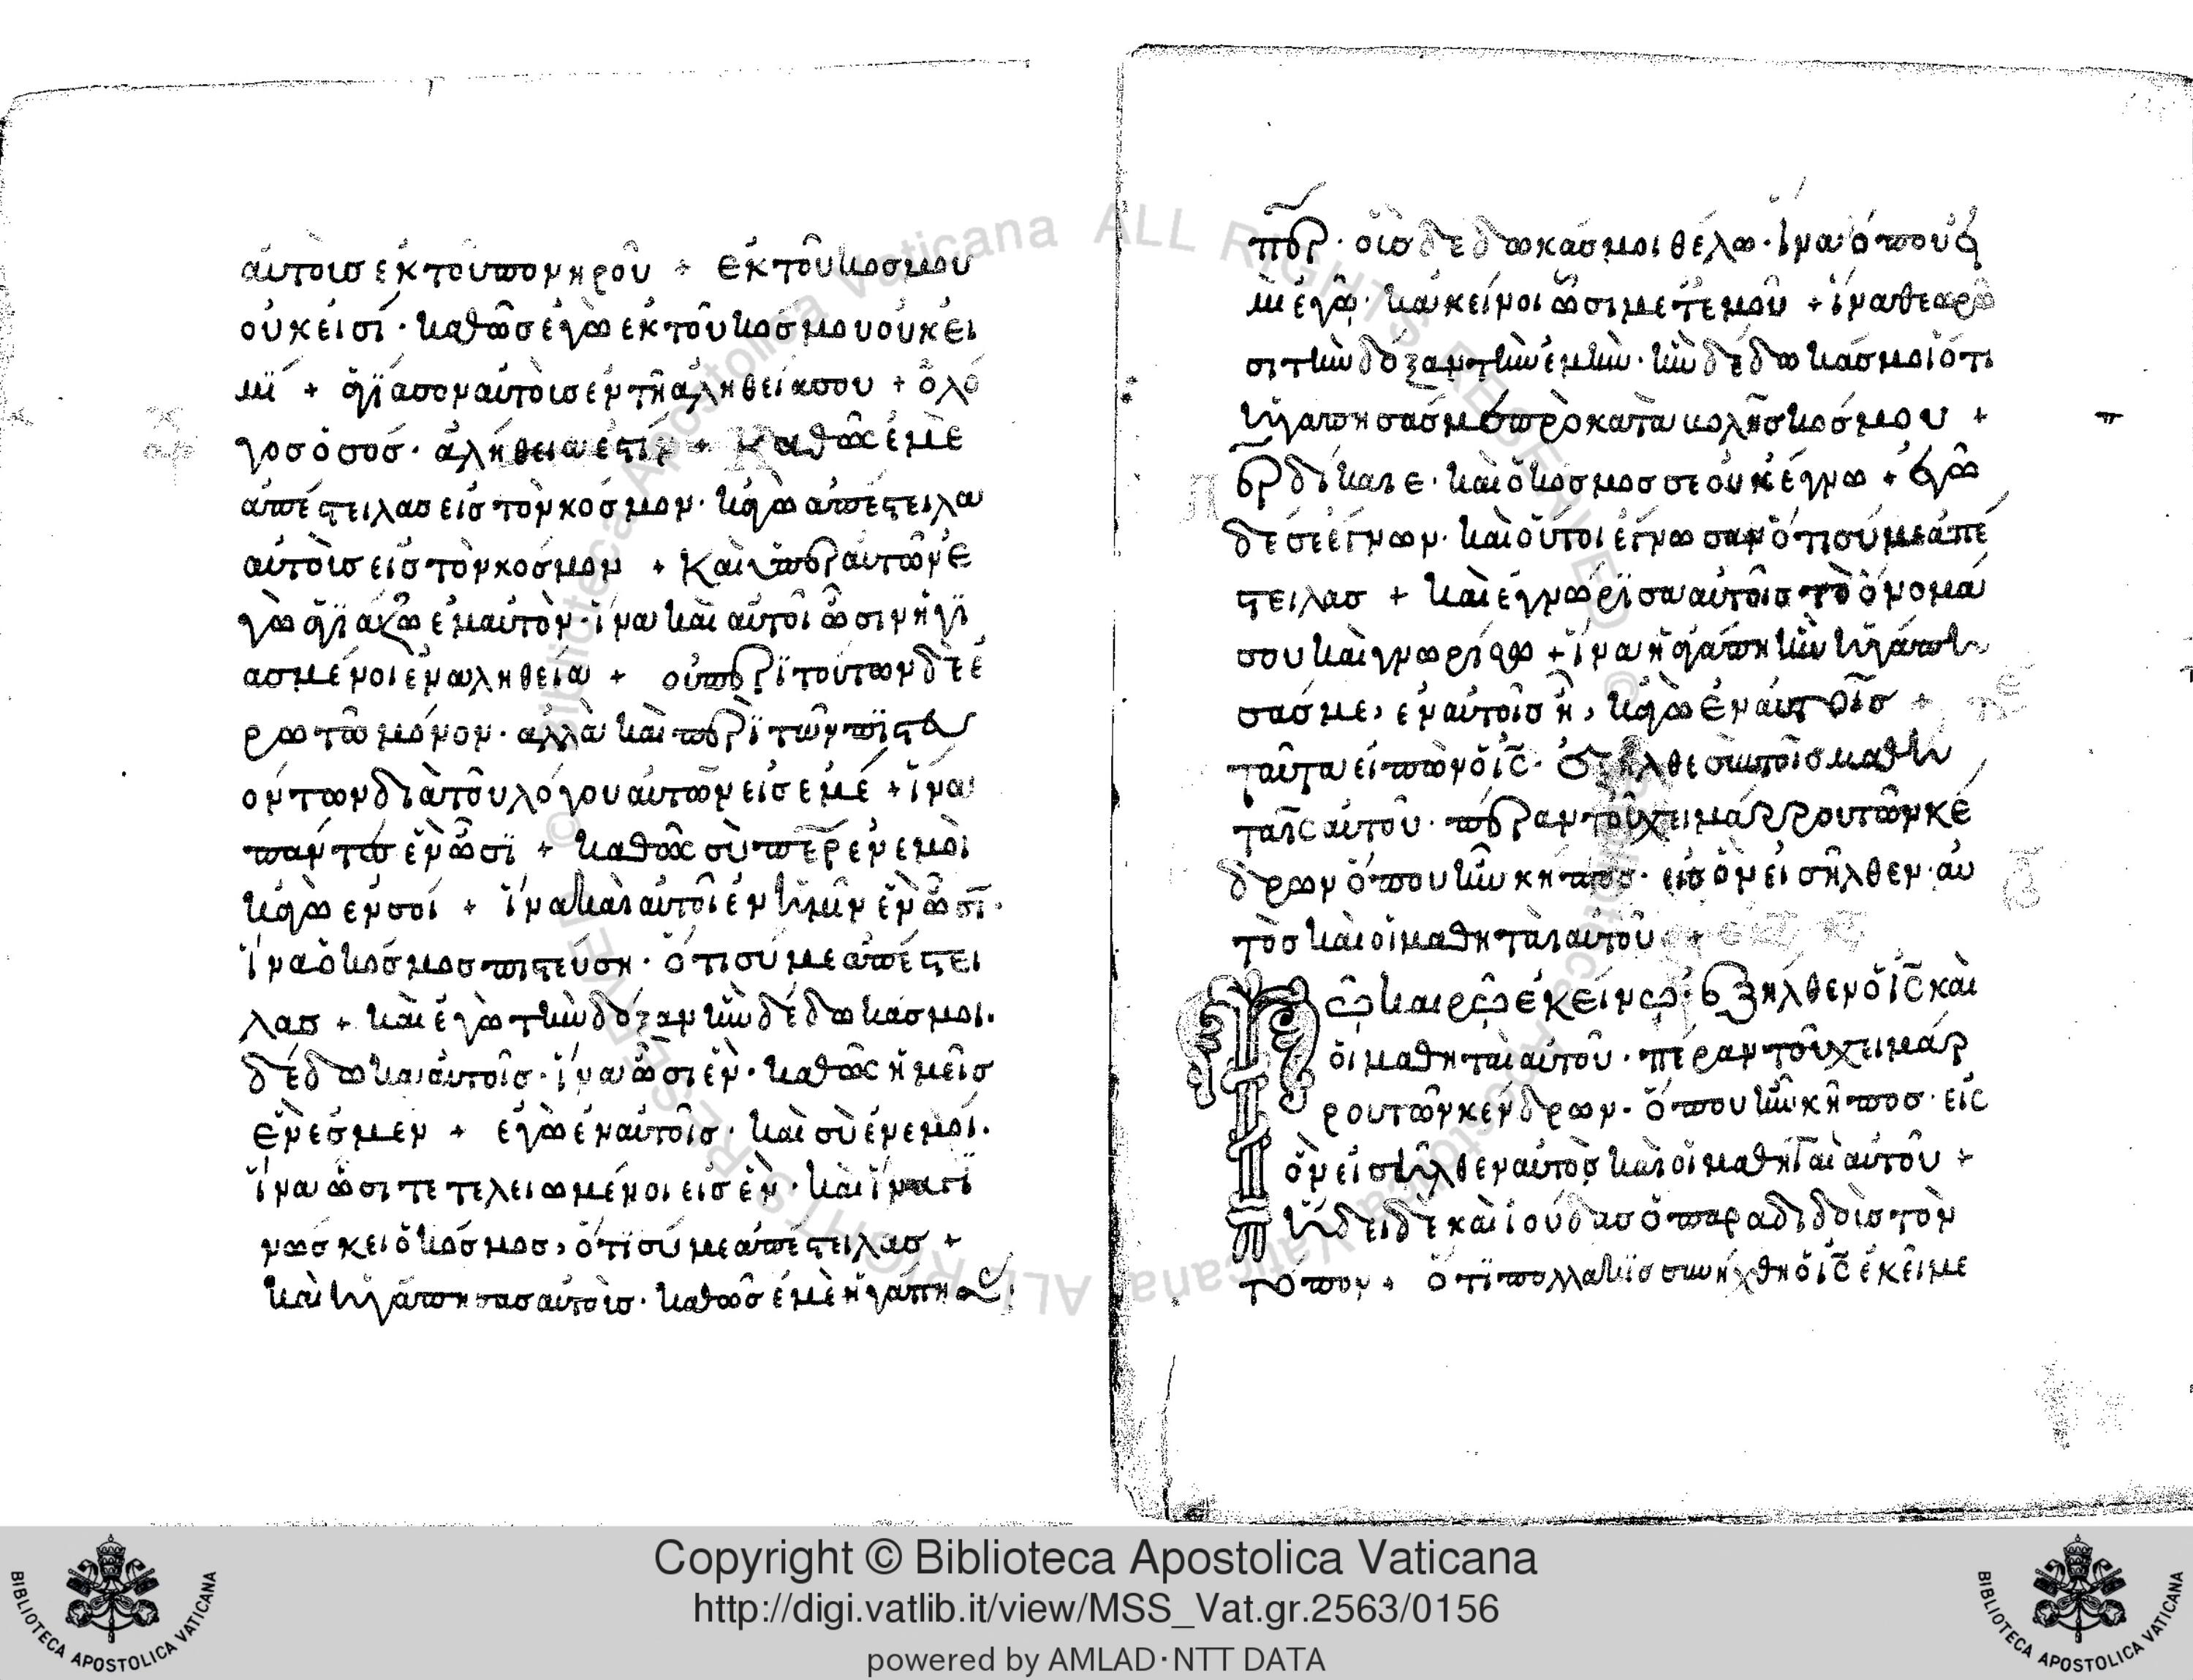 αὐτοὺσ ἐκ τοῦ πονηροῦ + ἐκ τοῦ κοσμου
οὐκ εἰσί · καθὼσ ἐγὼ ἐκ τοῦ κοσμου οὐκ εἰ
μῒ + ἁγίασον αὐτοὺσ ἐν τῆ ἀληθεία σου + ὁ λό
γοσ ὁ σοσ · ἀλήθεια ἐστιν + Καθὼς ἐμὲ
ἀπέστειλασ εἰσ τὸν κοσμον · κἀγὼ ἀπέστειλα
αὐτοὺσ εἰσ τὸν κοσμον + Καὶ ὑπὲρ αὐτῶν ἐ
γὼ ἁγϊαζω ἐμαυτὸν · ἵνα καὶ αὐτοὶ ὦσιν ἡγϊ
ασμένοι ἐν ἀληθεία + οὐ περὶ τούτων δὲ ἐ
ρωτῶ μόνον · ἀλλὰ καὶ περὶ τῶν πϊστευ
όντων διὰ τοῦ λόγου αὐτῶν εἰσ ἐμέ + ἵνα
παντεσ ἓν ὦσϊ + καθὼς σὺ περ ἐν ἐμοὶ
κἀγὼ ἐν σοί + ἵνα καὶ αὐτοὶ ἐν ἡμῖν ἓν ὦσϊ ·
ἵνα ὁ κόσμοσ πιστεύση · ὅτι σύ με ἀπέστει
λασ + καὶ ἐγὼ τὴν δόξαν ἣν δέδωκάσ μοι ·
δέδωκα αὐτοῖσ · ἵνα ὦσι ἓν · καθὼς ἡμεῖσ
ἓν ἐσμεν + ἐγὼ ἐν αὐτοῖσ · καὶ σὺ ἐν ἐμοί ·
ἵνα ὦσι τετελειωμένοι εἰσ ἓν · καὶ ἵνα γϊ
νωσκει ὁ κόσμοσ, ὅτϊ σύ με ἀπέστειλασ +
καὶ ἠγάπησασ αὐτοὺσ · καθὼσ ἐμὲ ἠγάπησας ·
περ · οὓσ δέδωκάσ μοι θέλω · ἵνα ὅπου εἰ
μὶ ἐγὼ · κἀκείνοι ὦσι μετ' ἐμοῦ + ἵνα θεωρῶ
σι τὴν δόξαν τὴν ἐμὴν · ἣν δέδωκάσ μοι ὅτι
ἠγάπησάσ με πρὸ καταβολῆσ κόσμου +
περ δίκαιε · καὶ ὁ κόσμοσ σε οὐκ ἔγνω + ἐγὼ
δέ σε ἔγνων · καὶ οὗτοι ἔγνωσαν ὅτι σύ με ἀπέ
στειλασ + καὶ ἐγνώρϊσα αὐτοῖσ τὸ ὄνομα
σου καὶ γνωρίσω + ἵνα ἡ ἀγάπη ἣν ἠγάπη
σάσ με, ἐν αὐτοῖσ ἦ, κἀγὼ ἐν αὐτοῖσ +
ταῦτα εἰπὼν ὁ ἰς · ἐξῆλθε σὺν τοῖσ μαθη
ταῖς αὐτοῦ · πέραν τοῦ χειμάρρου τῶν κέ
δρων ὅπου ἦν κῆποσ · εἰσ ὃν εἰσῆλθεν αὐ
τὸσ καὶ οἱ μαθηταὶ αὐτοῦ +
Τῶ καιρῶ ἐκείνω · ἐξῆλθεν ὁ ἰς καὶ
οἱ μαθηταὶ αὐτοῦ · πέραν τοῦ χειμάρ
ρου τῶν κένδρων · ὅπου ἦν κῆποσ · εἰς
ὃν εἰσῆλθεν αὐτὸσ καὶ οἱ μαθηταὶ αὐτοῦ +
ἤδει δὲ καὶ ἰούδασ ὁ παραδιδοὺσ τὸν
τόπον + ὅτϊ πολλακϊσ συνήχθη ὁ ἰς ἐκεῖ με
Copyright © Biblioteca Apostolica Vaticana
http://digi.vatlib.it/view/MSS_Vat.gr.2563/0156
powered by AMLAD·NTT DATA
BIBLIOTECA APOSTOLICA VATICANA
BIBLIOTECA APOSTOLICA VATICANA